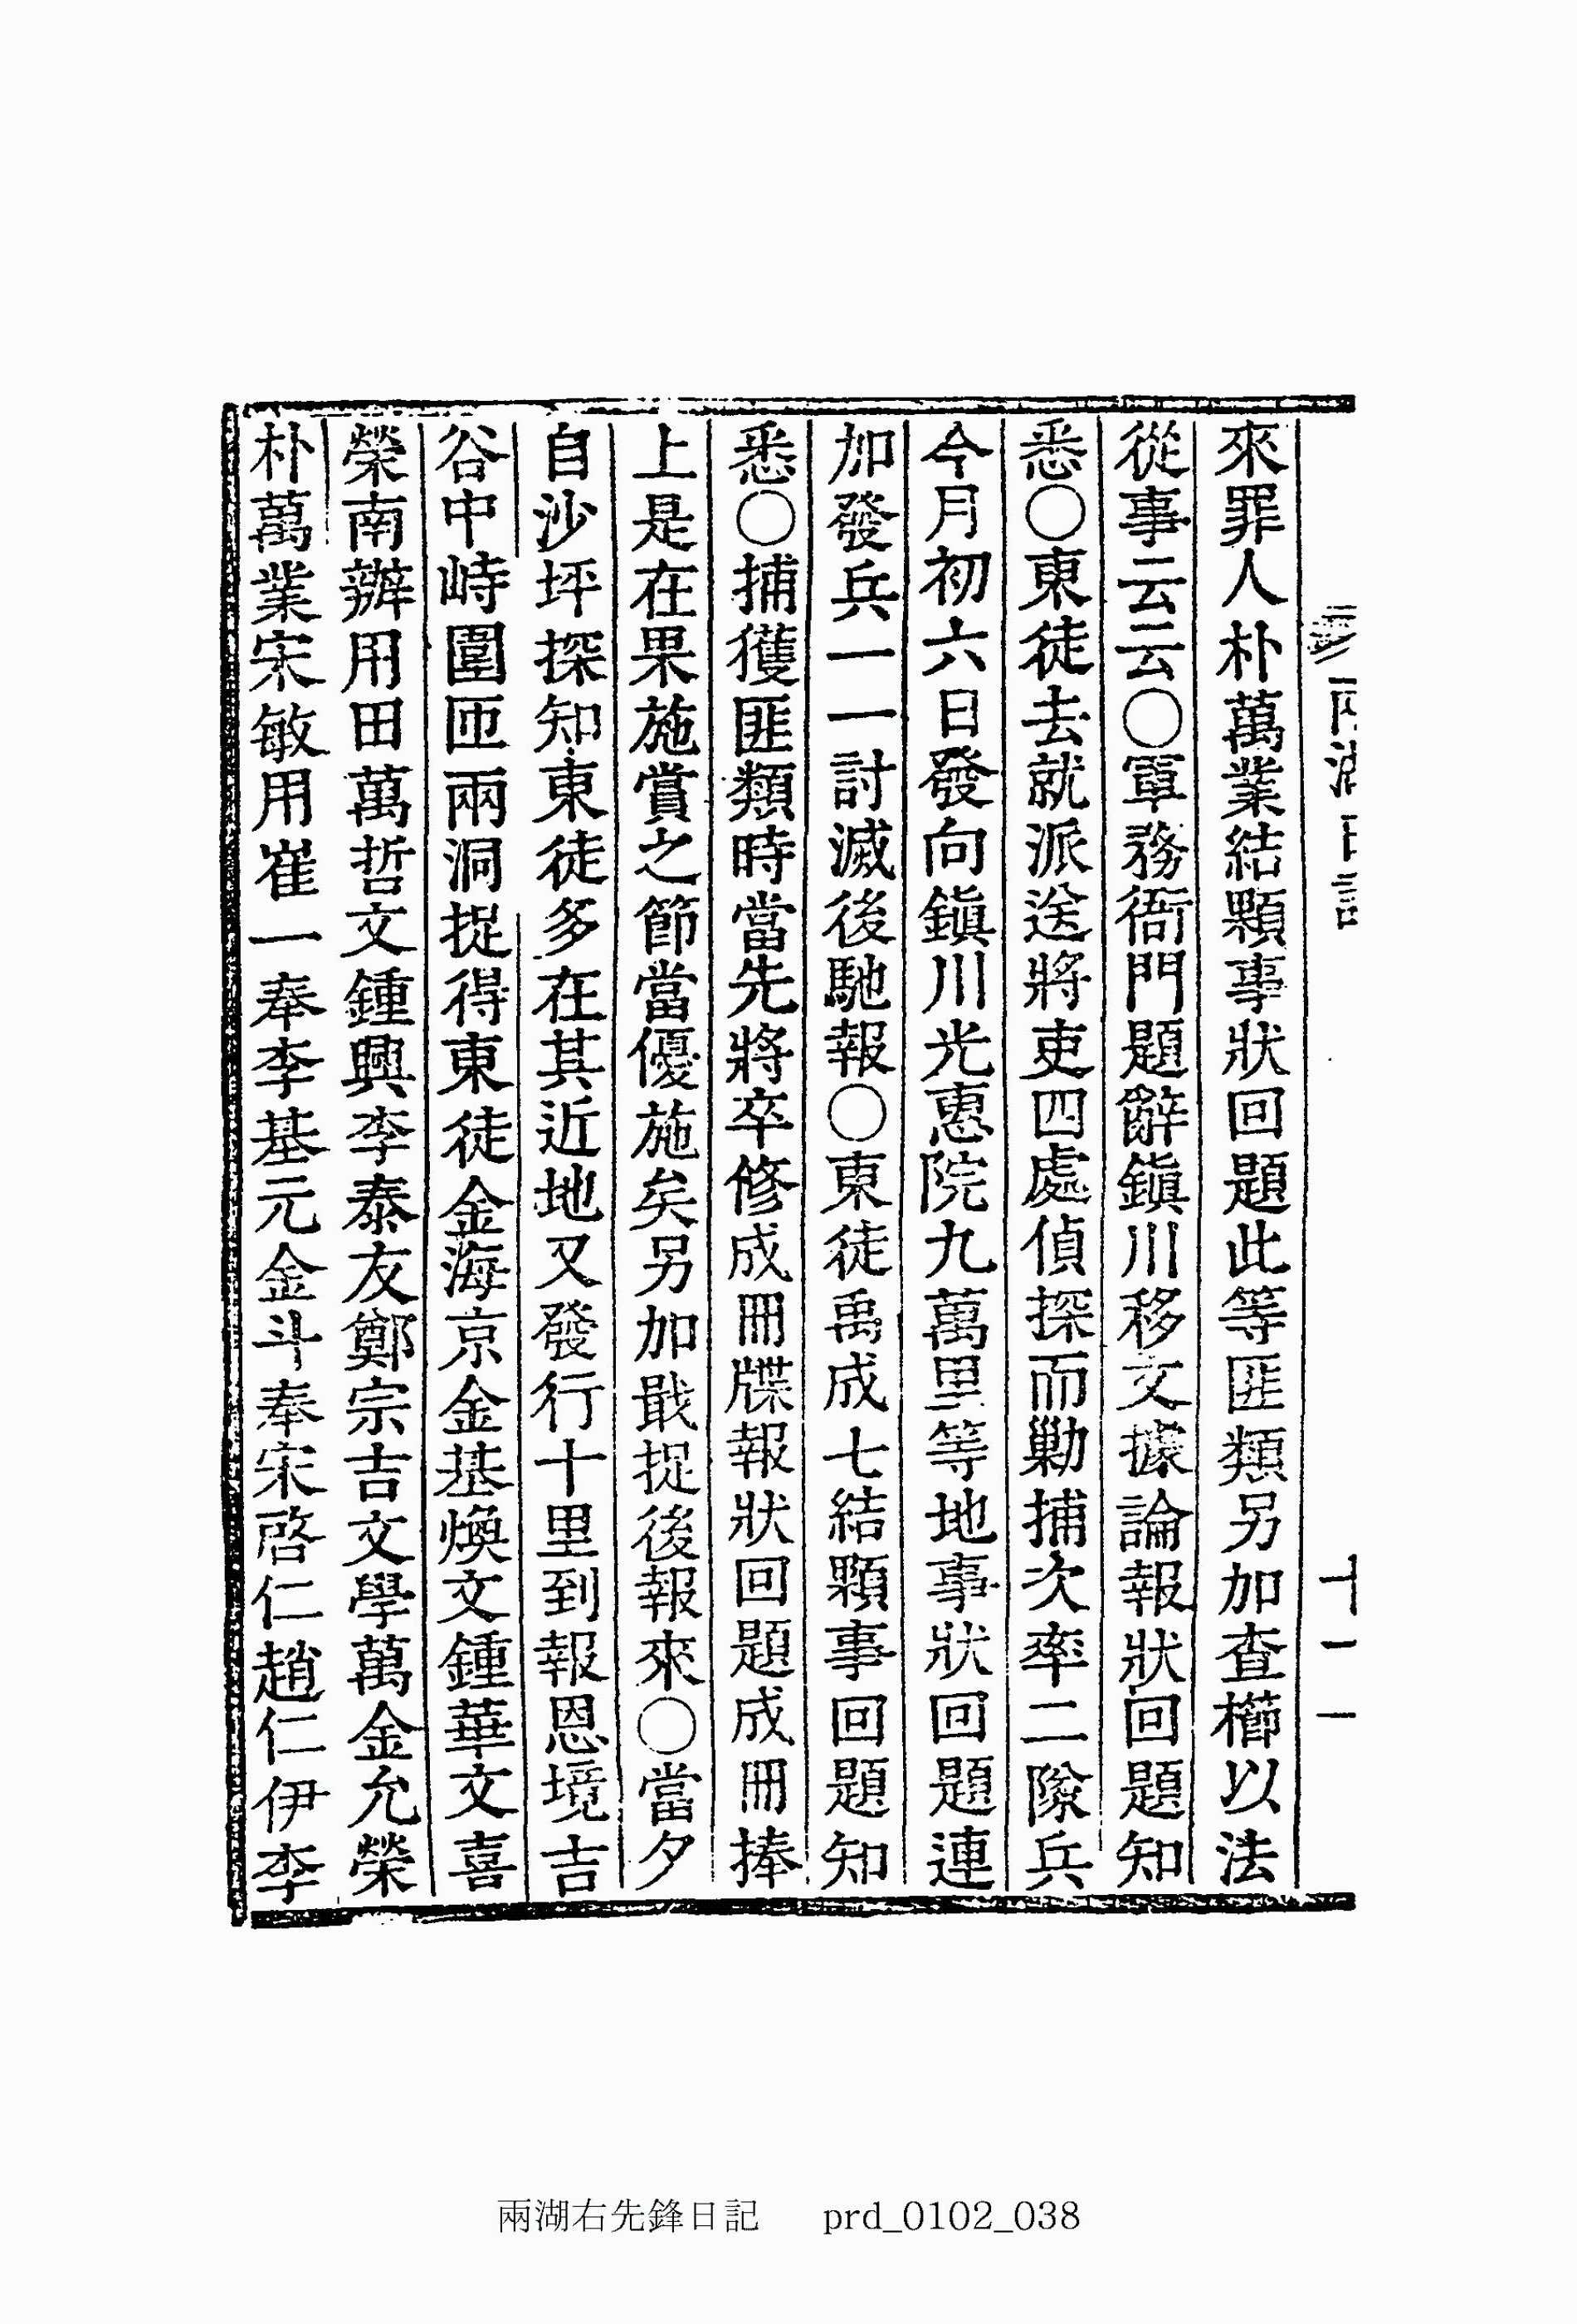 兩湖日記
十一
來罪人朴萬業結顆事狀回題此等匪類另加査櫛以法
從事云云○軍務衙門題辭鎭川移文據論報狀回題知
悉○東徒去就派送將吏四處偵探而勦捕次率二隊兵
今月初六日發向鎭川光惠院九萬里等地事狀回題連
加發兵一一討滅後馳報○東徒禹成七結顆事回題知
悉○捕獲匪類時當先將卒修成冊牒報狀回題成冊捧
上是在果施賞之節當優施矣另加戢捉後報來○當夕
自沙坪探知東徒多在其近地又發行十里到報恩境吉
谷中峙圍匝兩洞捉得東徒金海京金基煥文鍾華文喜
榮南辦用田萬哲文鍾興李泰友鄭宗吉文學萬金允榮
朴萬業宋敏用崔一奉李基元金斗奉宋啓仁趙仁伊李
兩湖右先鋒日記 prd_0102_038